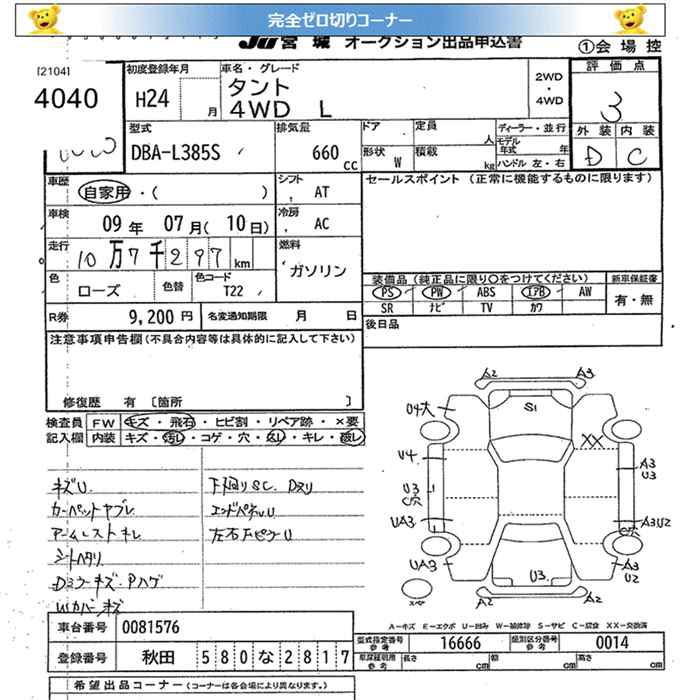 完全ゼロ切りコーナー
JU 宮城 オークション出品申込書
①会場控
[2104]
4040
初度登録年月
H24 月
車名・グレード
タント
4WD L
2WD
・
4WD
評価点
3
外装 内装
D C
型式
DBA-L385S
排気量
660 cc
ドア
形状 W
定員 人
積載 kg
ディーラー・並行
モデル年式 年
ハンドル 左・右
車歴 自家用・( )
シフト AT
セールスポイント (正常に機能するものに限ります)
車検 09年 07月(10日)
冷房 AC
走行 10万7千297km
燃料 ガソリン
色 ローズ 色替 色コード T22
装備品(純正品に限り○をつけてください) 新車保証書
PS PW ABS エアB AW 有・無
SR ナビ TV カワ
R券 9,200円 名変通知期限 月 日
後日品
注意事項申告欄(不具合内容等は具体的に記入して下さい)
修復歴 有 [箇所 ]
検査員記入欄
FW キズ・飛石・ヒビ割・リペア跡・×要
内装 キズ・汚レ・コゲ・穴・ 
・キレ・破レ
キズU
カーペットヤブレ
アームレストキレ
シートヘタリ
Dミラーキズ・Pハゲ
Wカバーキズ
下廻りSC. Dヌリ
エンドパネルU
左右FピラーU
A2 A3
U4大 S1
XX
U4
A3
U3
U3
C穴
UA3 A3U2
C穴
UA3 A3
U2
U3
A2 A2
A-キズ E-エクボ U-凹み W-補修跡 S-サビ C-腐食 XX-交換済
車台番号 0081576
登録番号 秋田 580な2817
型式指定番号 参考 16666 類別区分番号 参考 0014
車庫証明用 参考 長さ cm 幅 cm 高さ cm
希望出品コーナー(コーナーは各会場により異なります。)